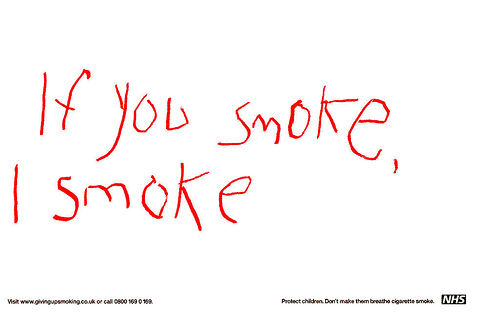 If you smoke,
I smoke
Visit www.givingupsmoking.co.uk or call 0800 169 0 169.
Protect children. Don't make them breathe cigarette smoke. NHS